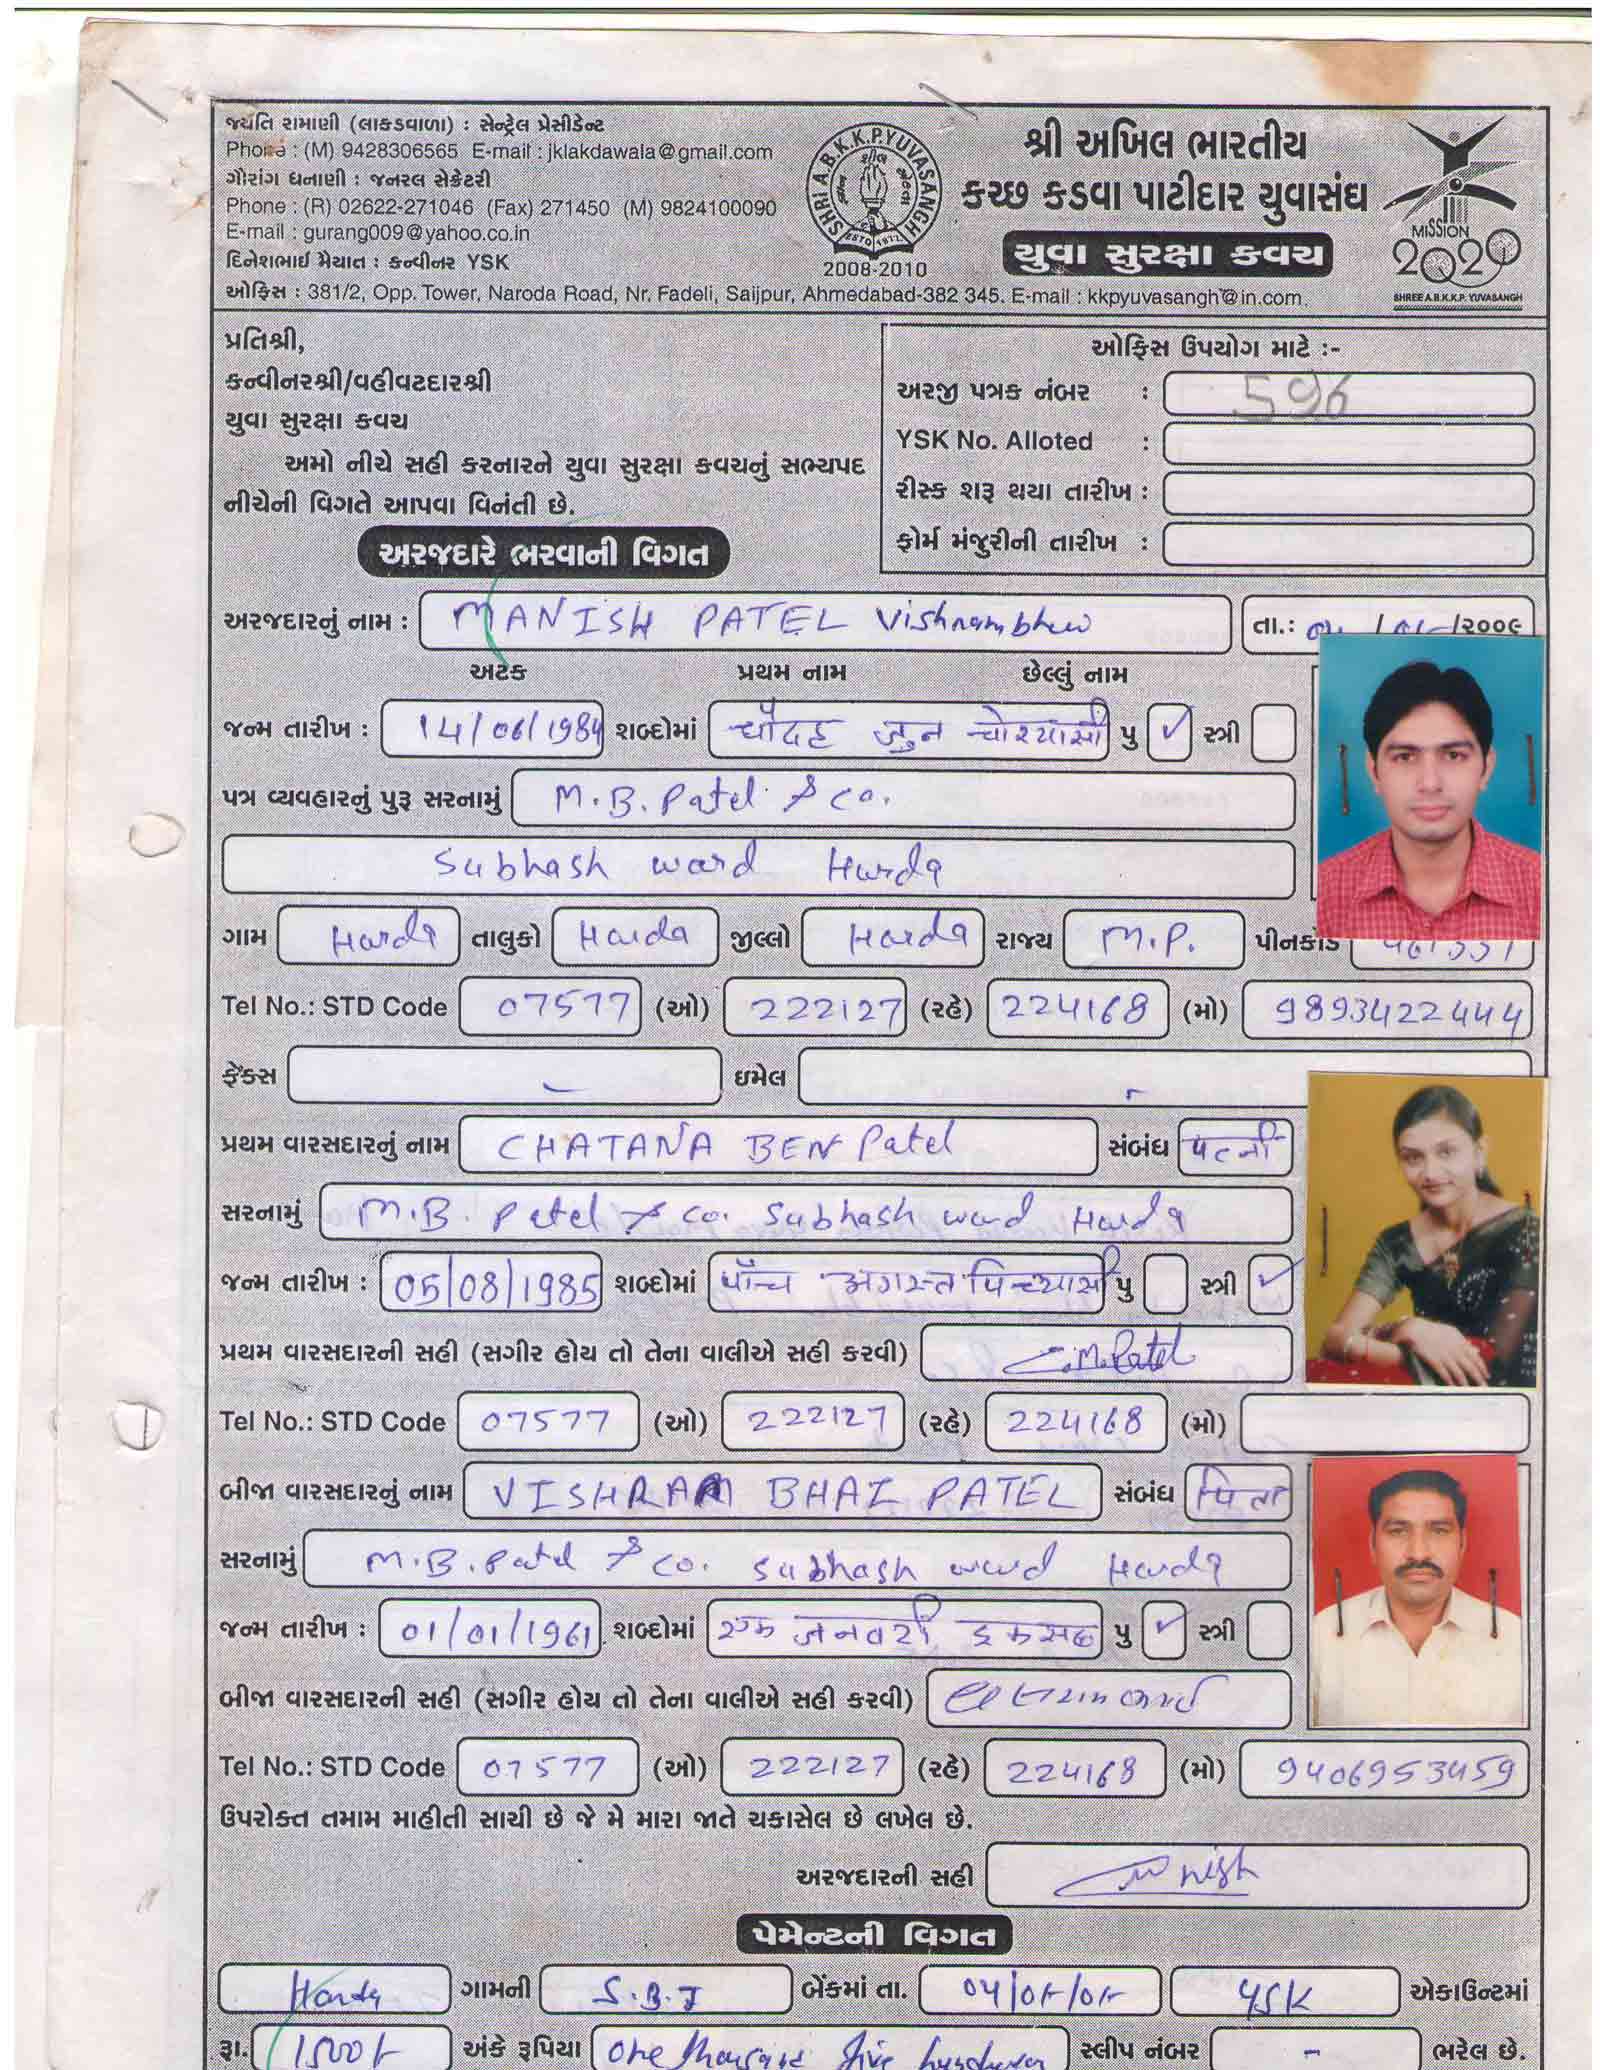 જયંતિ રામાણી (લાકડવાળા) : સેન્ટ્રેલ પ્રેસીડેન્ટ
Phone : (M) 9428306565 E-mail : jklakdawala@gmail.com
ગૌરાંગ ધનાણી : જનરલ સેક્રેટરી
Phone : (R) 02622-271046 (Fax) 271450 (M) 9824100090
E-mail : gurang009@yahoo.co.in
દિનેશભાઈ મૈયાત : કન્વીનર YSK
SHRI A.B.K.K.P. YUVASANGH
ESTD 1977
2008-2010
શ્રી અખિલ ભારતીય
કચ્છ કડવા પાટીદાર યુવાસંઘ
યુવા સુરક્ષા કવચ
MISSION
2020
SHREE A.B.K.K.P. YUVASANGH
ઓફિસ : 381/2, Opp. Tower, Naroda Road, Nr. Fadeli, Saijpur, Ahmedabad-382 345. E-mail : kkpyuvasangh@in.com.
પ્રતિશ્રી,
કન્વીનરશ્રી/વહીવટદારશ્રી
યુવા સુરક્ષા કવચ
અમો નીચે સહી કરનારને યુવા સુરક્ષા કવચનું સભ્યપદ
નીચેની વિગતે આપવા વિનંતી છે.
ઓફિસ ઉપયોગ માટે :-
અરજી પત્રક નંબર : 596
YSK No. Alloted :
રીસ્ક શરૂ થયા તારીખ :
ફોર્મ મંજુરીની તારીખ :
અરજદારે ભરવાની વિગત
અરજદારનું નામ : MANISH PATEL Vishrambhai તા.: /૨૦૦૯
અટક પ્રથમ નામ છેલ્લું નામ
જન્મ તારીખ : 14/06/1984 શબ્દોમાં चौदह जुन चोरयासी પુ ✓ સ્ત્રી
પત્ર વ્યવહારનું પુરૂ સરનામું M.B. Patel & co.
Subhash ward Harda
ગામ Harda તાલુકો Harda જીલ્લો Harda રાજ્ય M.P. પીનકોડ 461331
Tel No.: STD Code 07577 (ઓ) 222127 (રહે) 224168 (મો) 9893422444
ફેક્સ - ઇમેલ -
પ્રથમ વારસદારનું નામ CHATANA BEN Patel સંબંધ पत्नी
સરનામું M.B. Patel & co. Subhash ward Harda
જન્મ તારીખ : 05/08/1985 શબ્દોમાં पाँच अगस्त पिच्यासी પુ સ્ત્રી ✓
પ્રથમ વારસદારની સહી (સગીર હોય તો તેના વાલીએ સહી કરવી) C.M.Patel
Tel No.: STD Code 07577 (ઓ) 222127 (રહે) 224168 (મો)
બીજા વારસદારનું નામ VISHRAM BHAI PATEL સંબંધ पिता
સરનામું M.B. Patel & co. Subhash ward Harda
જન્મ તારીખ : 01/01/1961 શબ્દોમાં एक जनवरी इकसठ પુ ✓ સ્ત્રી
બીજા વારસદારની સહી (સગીર હોય તો તેના વાલીએ સહી કરવી)
Tel No.: STD Code 07577 (ઓ) 222127 (રહે) 224168 (મો) 9406953459
ઉપરોક્ત તમામ માહીતી સાચી છે જે મે મારા જાતે ચકાસેલ છે લખેલ છે.
અરજદારની સહી Manish
પેમેન્ટની વિગત
Harda ગામની S.B.I બેંકમાં તા. 04/ YSK એકાઉન્ટમાં
રૂા. 1500/- અંકે રૂપિયા One thousand five hundred સ્લીપ નંબર - ભરેલ છે.